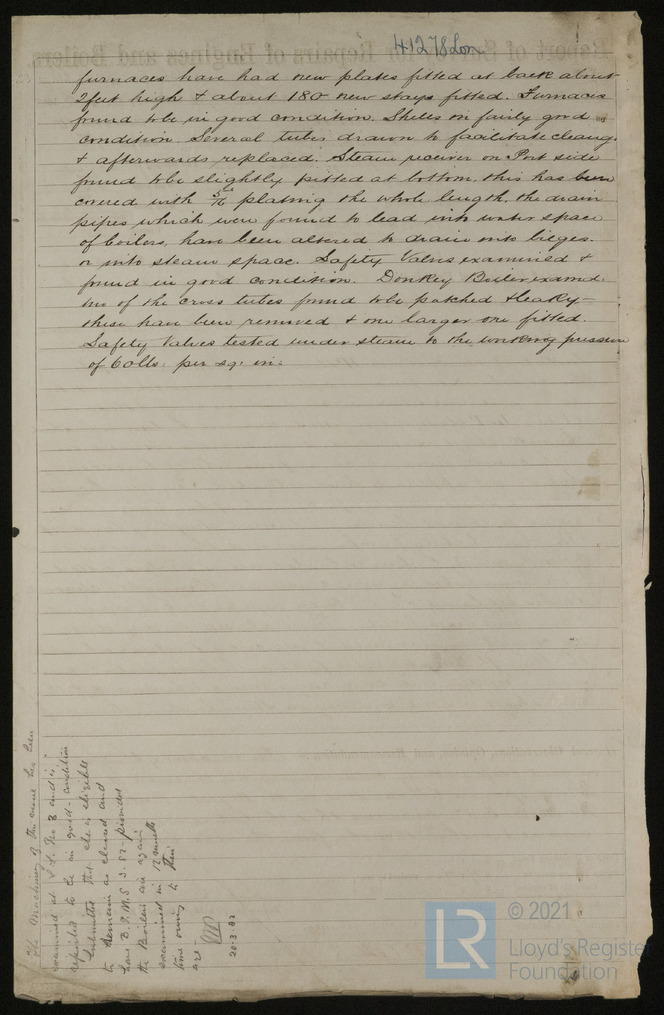 41278 Lon
Report of Survey for Repairs of Engines and Boilers
furnaces have had new plates fitted at back about
2 feet high & about 180 new stays fitted. Furnaces
found to be in good condition. Shells in fairly good
condition. Several tubes drawn to facilitate cleang.
& afterwards replaced. Steam receiver on Port side
found to be slightly pitted at bottom, this has been
covered with 5/16 plating the whole length, the drain
pipes which were found to lead into water space
of boilers, have been altered to drain into bilges.
or into steam space. Safety Valves examined &
found in good condition. Donkey Boiler examd.
two of the cross tubes found to be patched & leaky -
these have been removed & one larger one fitted.
Safety Valves tested under steam to the working pressure
of 60 lbs. per sq: in:
The Machinery of this vessel has been
examined at S.S. No 3 and is
reported to be in good condition
Submitted that she is eligible
to remain as classed and
have B.&M.S 3.82 - provided
the Boilers are again
examined in 12 months
time owing to their
age -
20.3.82
LR
© 2021
Lloyd's Register
Foundation